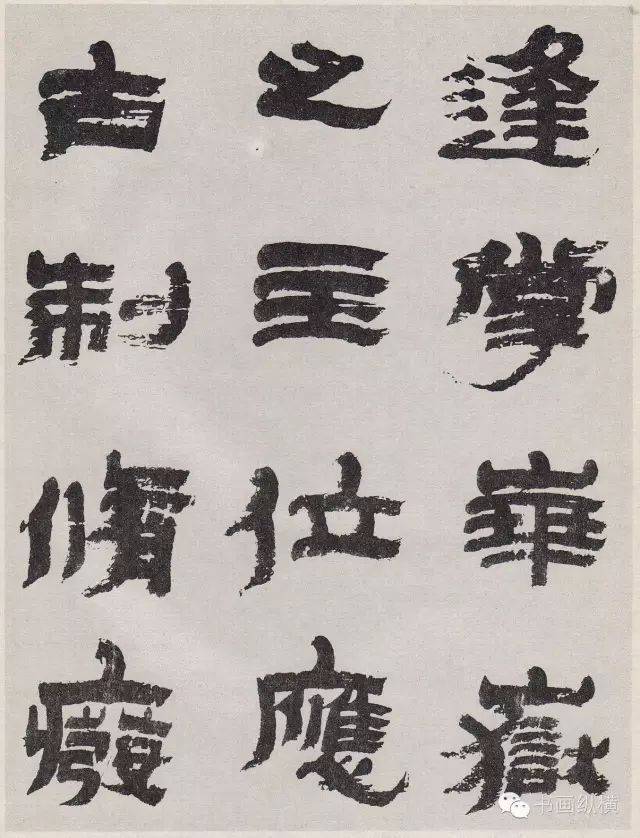 逢掌華嶽
之主位應
古制脩癈
书画纵横